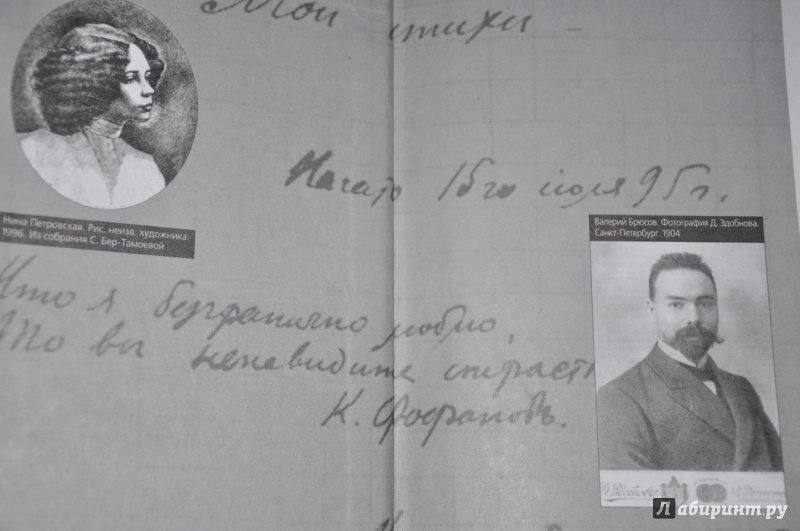 Мои стихи
Нина Петровская. Рис. неизв. художника.
1996. Из собрания С. Бер-Тамоевой
Начато 15го июля 95 г.
Валерий Брюсов. Фотография Д. Здобнова.
Санкт-Петербург. 1904
Что я безгранично люблю,
То вы ненавидите страст
К. Фофановъ.
Лабиринт.ру